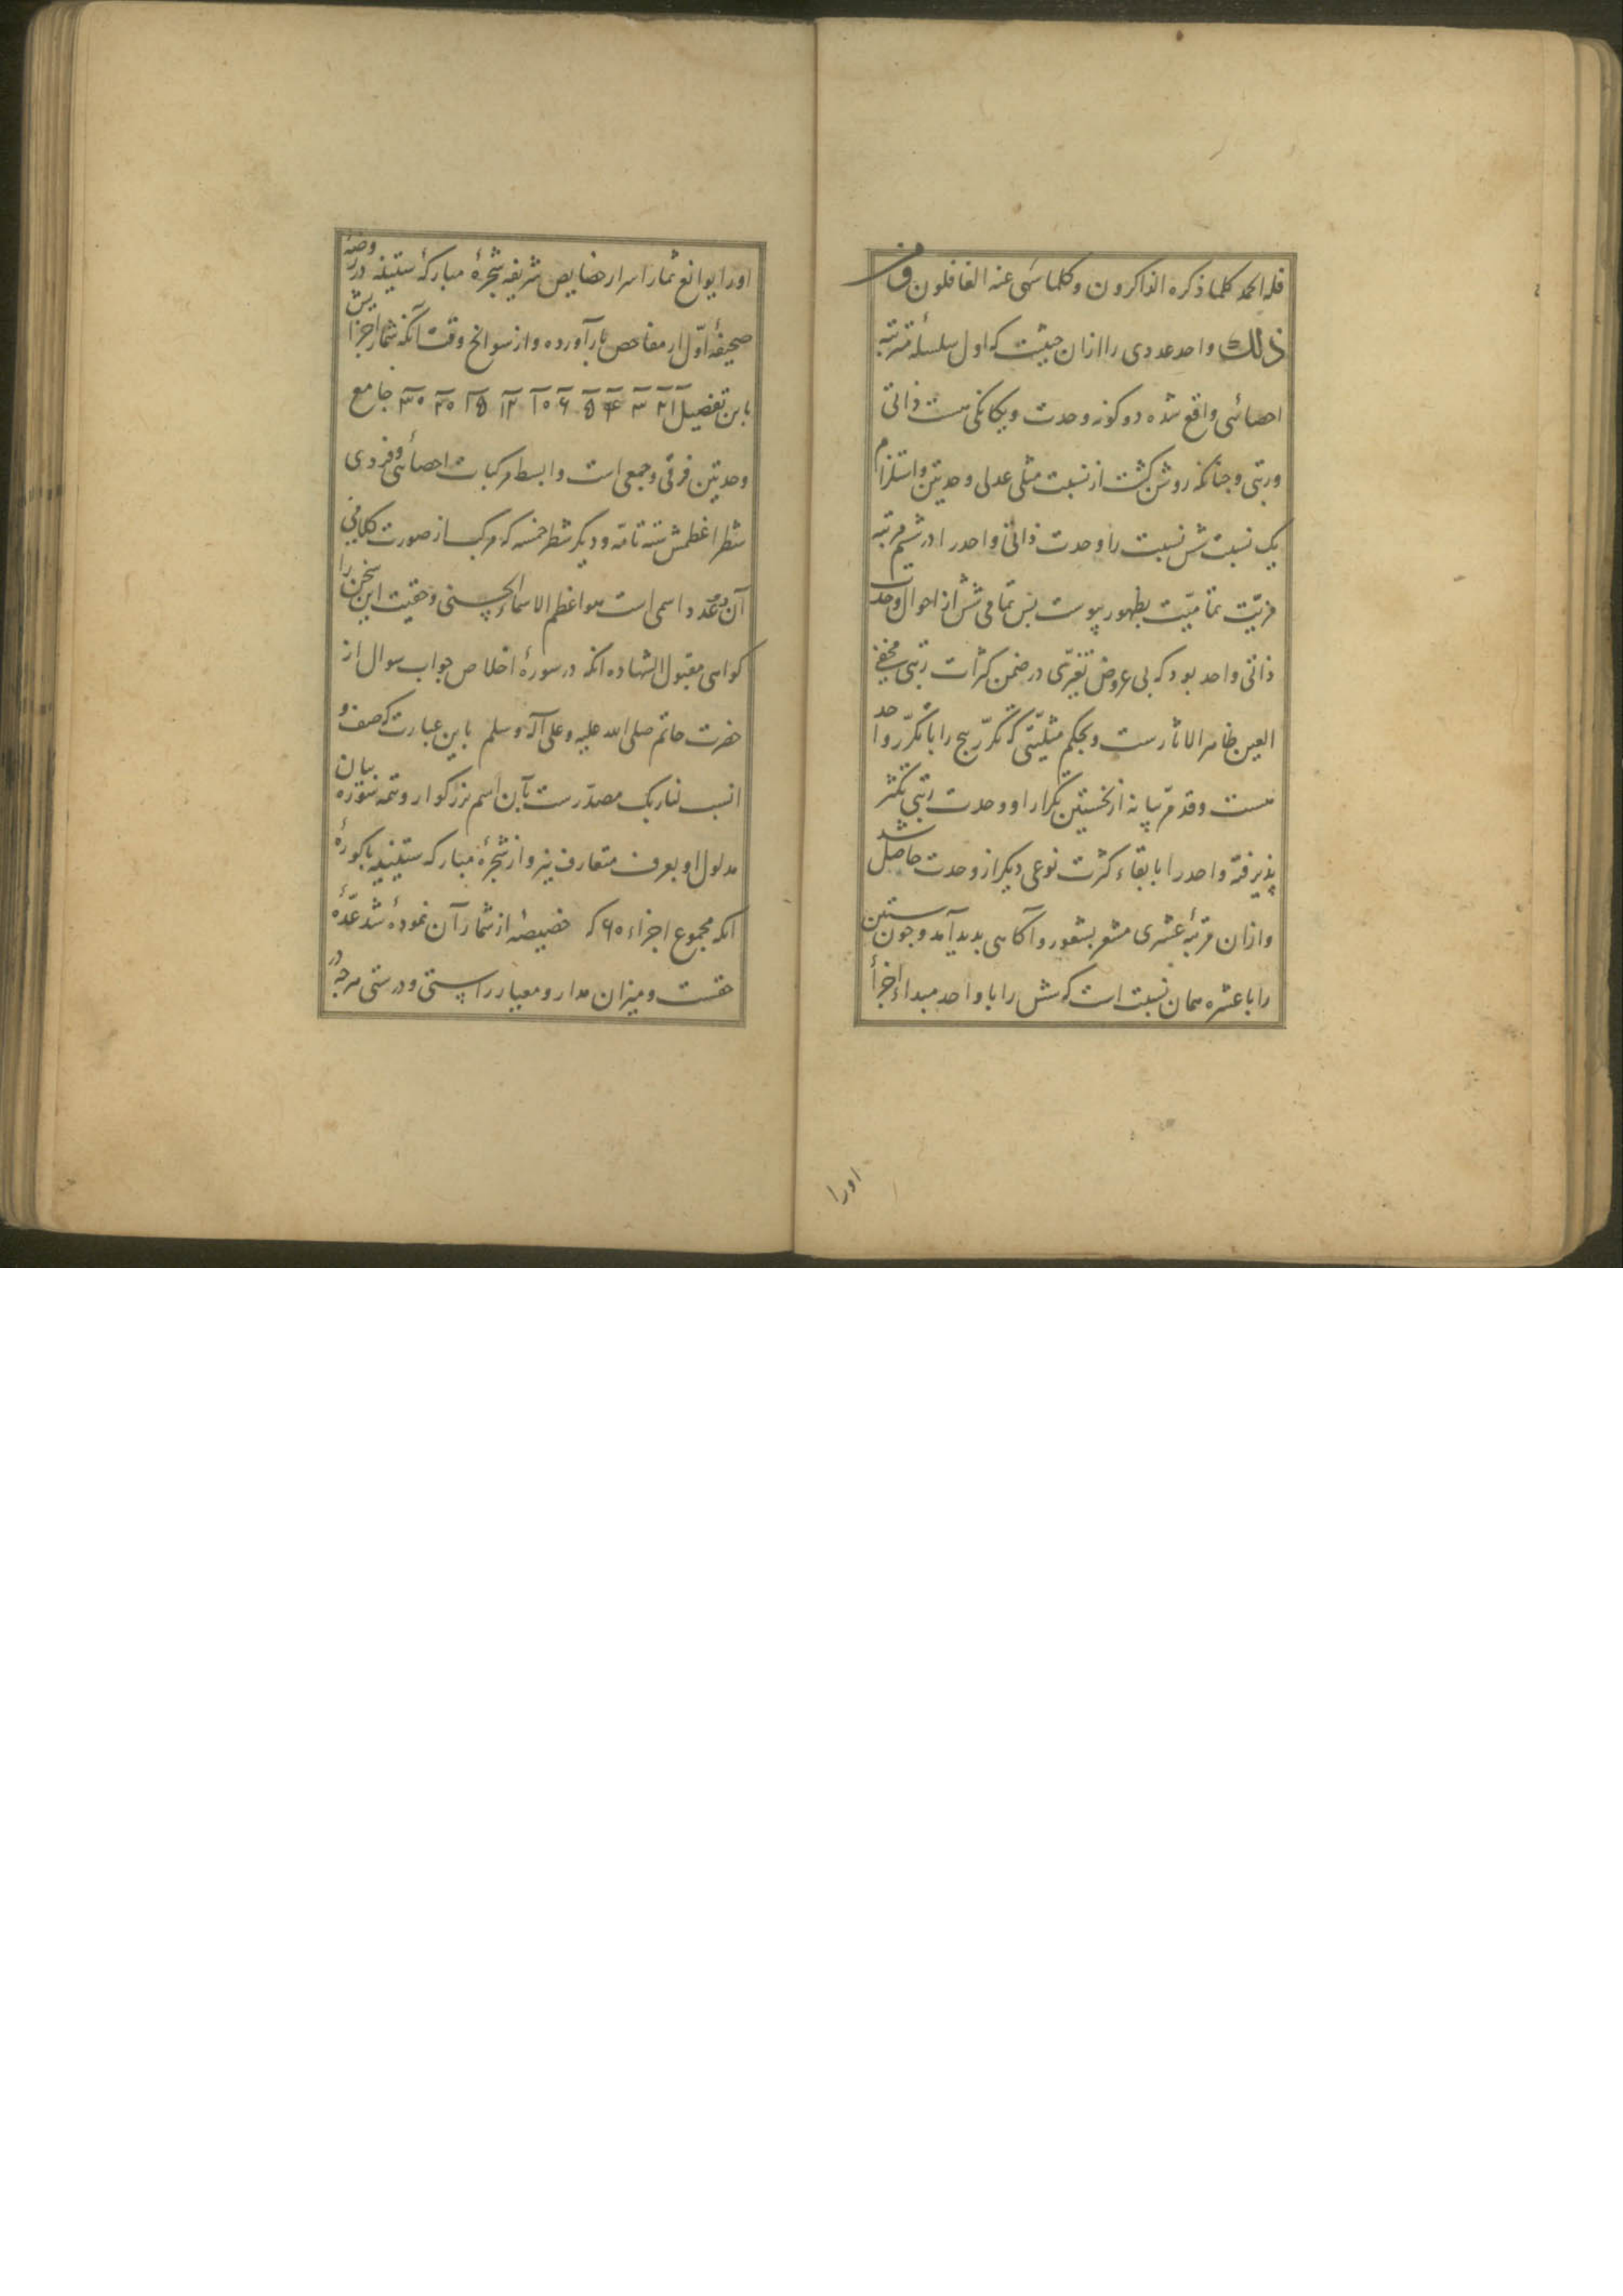 فله الحمد کلما ذکره الذاکرون وکلما سهی عنه الغافلون وفی
ذلک واحد عددی را ازان حیثیت که اول سلسلهٔ مترتبه
احصائی واقع شده دو کونه وحدت ویکانکی هست ذاتی
ورتبی وچنانکه روشن کشت از نسبت مثلی عدلی وحدیتن واستلزام
یک نسبت شش نسبت را وحدت ذاتی واحد را در ششم مرتبه
مزیّت تمامیّت بظهور پیوست پس تمامی شش از احوال وحدت
ذاتی واحد بود که بی عروض تغیّری در ضمن کثرات رتبی مخفی
العین ظاهر الاثارست وبحکم مثلیّتی که تکرّر پنج را با تکرّر واحد
هست وقد مرّ بیانه از نخستین تکرار او وحدت رتبی تکثر
پذیرفته واحد را با بقاء کثرت نوعی دیکر از وحدت حاصل شد
وازان مرتبهٔ عشری مشعر بشعور وآکاهی بدید آمد وچون ستین
را با عشره همان نسبت است که شش را با واحد مبداء اجزأ
اورا
اورا یوانع ثمار اسرار خصایص شریفه شجرهٔ مبارکهٔ ستینیه در روضهٔ
صحیفهٔ اوّل از مفاحص بار آورده واز سوانح وقت آنکه شمار اجزایش
باین تفصیل ۱ ۲ ۳ ۴ ۵ ۶ ۱۰ ۱۲ ۱۵ ۲۰ ۳۰ جامع
وحدیتن فرقی وجمعی است وابسط مرکبات احصائی وفردی
شطر اعظمش سته تامّه ودیکر شطر خمسه که مرکب از صورت کلامی
آن دو عدد اسمی است هو اعظم الاسماء الحسنی وحقیت این سخن را
کواهی مقبول الشهاده انکه در سورهٔ اخلاص جواب سوال از
حضرت خاتم صلی الله علیه وعلی آله وسلم باین عبارت که صف و
انسب لنا ربک مصدّرست بآن اسم بزرکوار وتتمه سوره بیان
مدلول او بعرف متعارف نیز واز شجرهٔ مبارکه ستینیه باکورهٔ
انکه مجموع اجزاء ۶۰ که خصیصهٔ از شمار آن نموده شد عدّهٔ
حقست ومیزان مدار ومعیار راستی ودرستی هرچه در